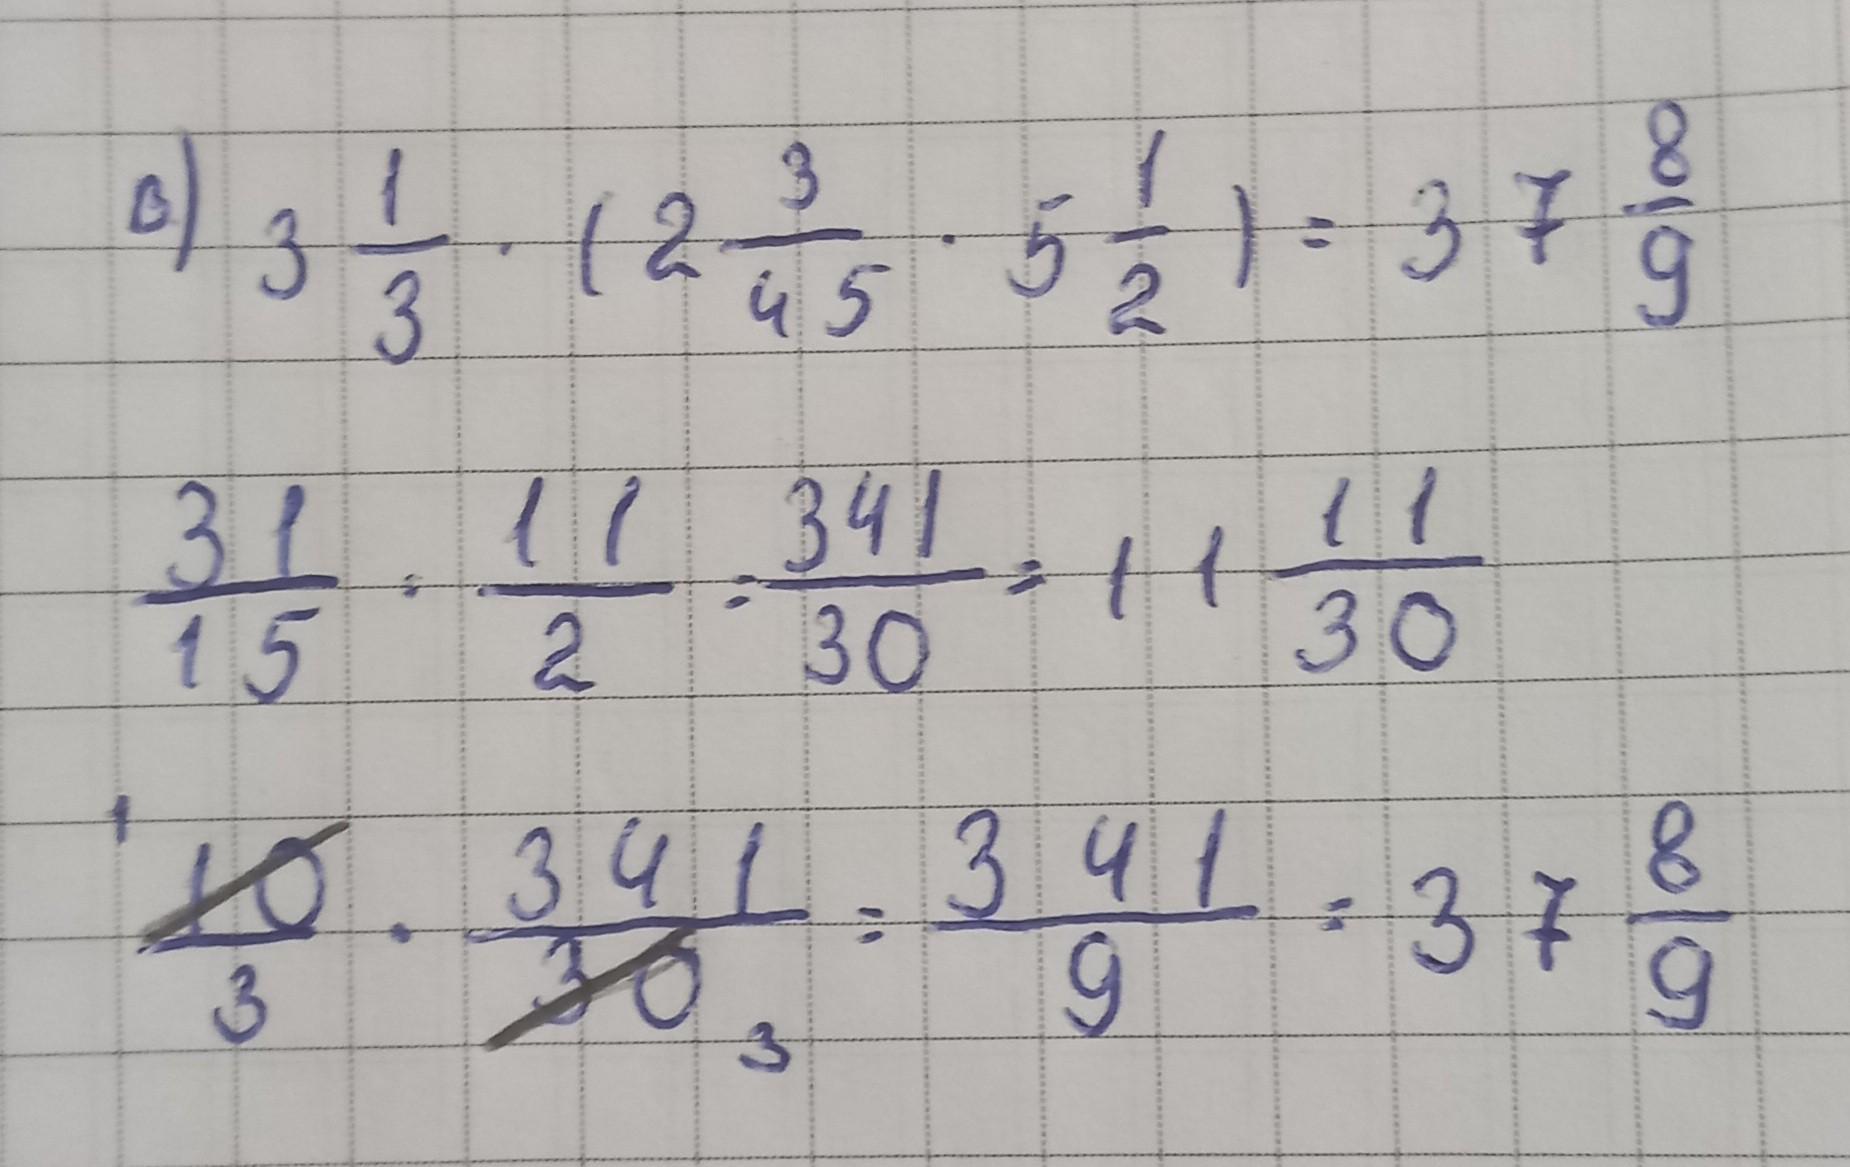 в) 3 1/3 · (2 3/45 · 5 1/2) = 37 8/9
31/15 · 11/2 = 341/30 = 11 11/30
1 10/3 · 341/30 3 = 341/9 = 37 8/9